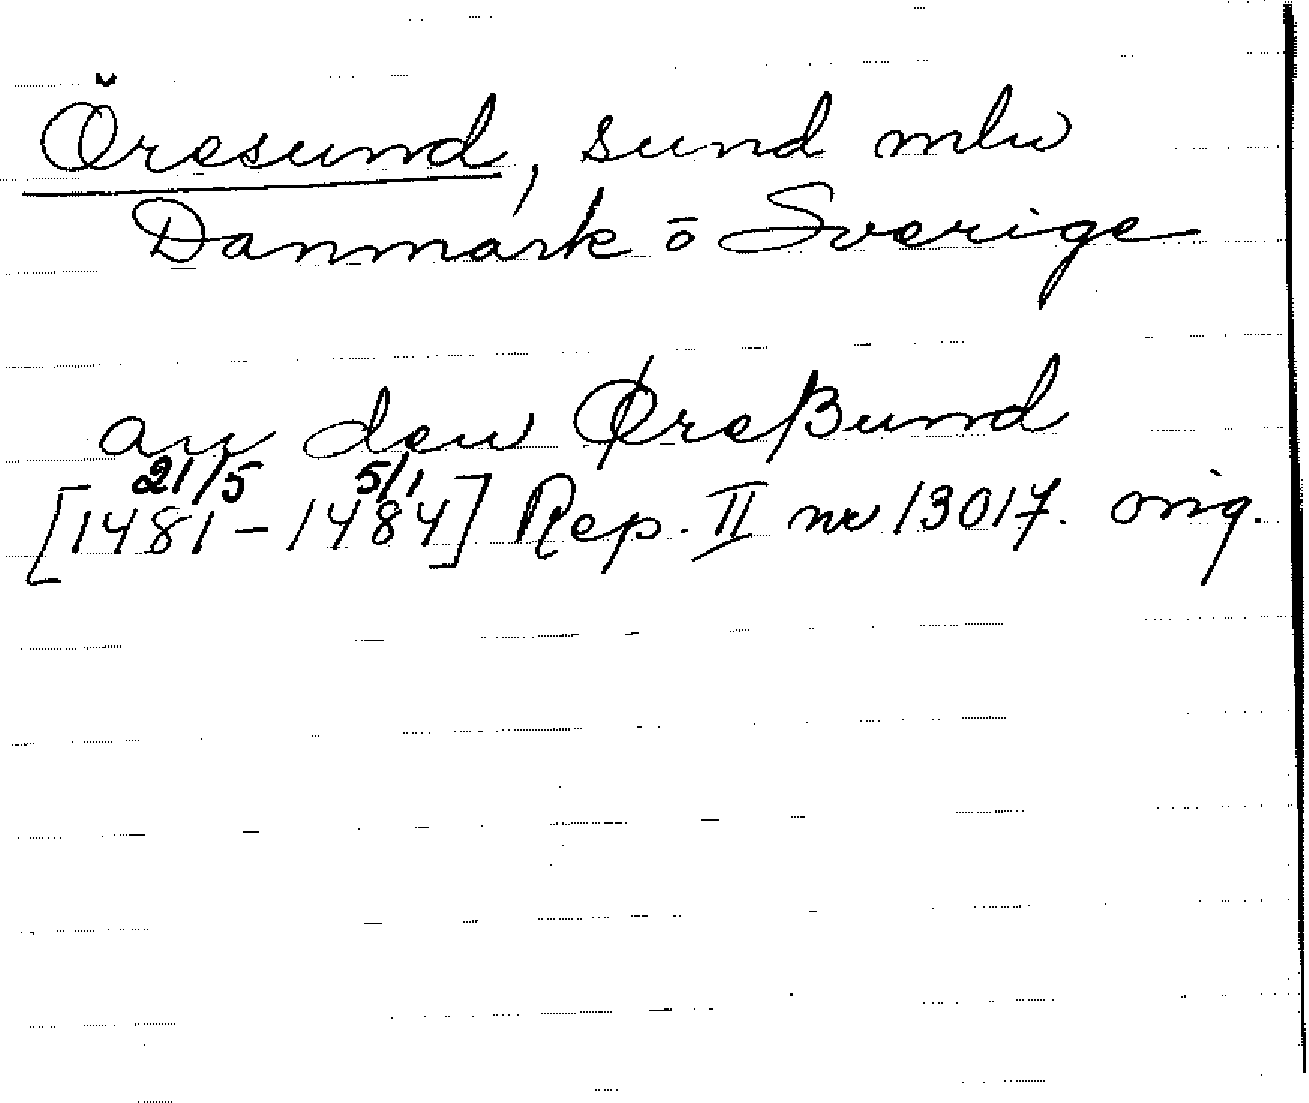 Öresund, sund mlw
Danmark ō Sverige
an den Øreßund
21/5 5/1
[1481-1484] Rep. II nr 13017. orig.